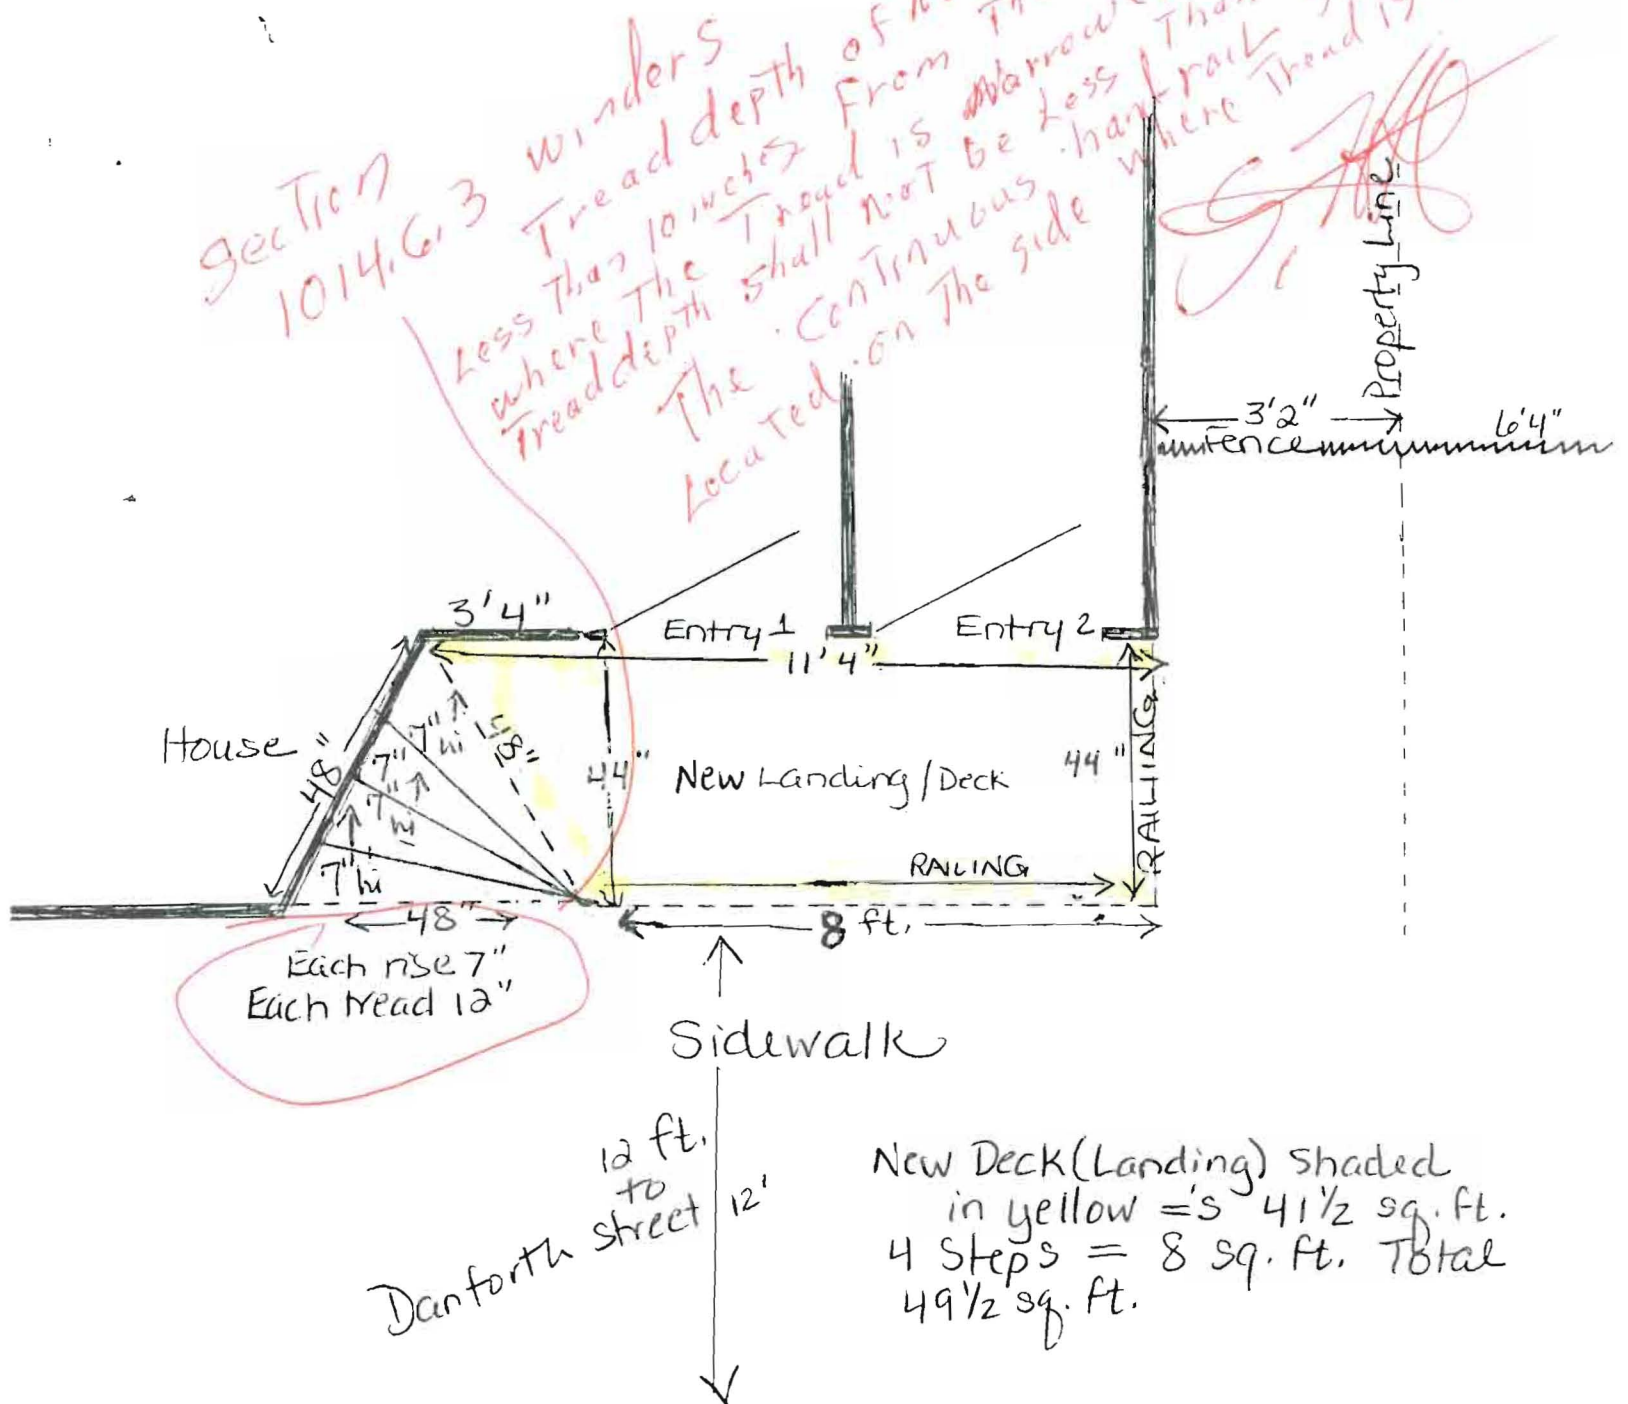 Section
1014.6.3 winders
Tread depth of
Less Than 10 inches From
where The Tread is narrow
Treaddepth shall not be Less Than
The continuous handrail
Located on The side where Tread is
Property Line
3'2"
6'4"
Fence
3'4"
Entry 1
Entry 2
11'4"
House
48"
7" hi
7"
7" hi
7"
7" hi
48"
44"
New Landing/Deck
44"
RAILING
RAILING
48"
8 ft.
Each rise 7"
Each tread 12"
Sidewalk
12 ft.
to
Danforth street
12'
New Deck (Landing) shaded
in yellow ='s 41 1/2 sq. ft.
4 Steps = 8 sq. ft. Total
49 1/2 sq. ft.